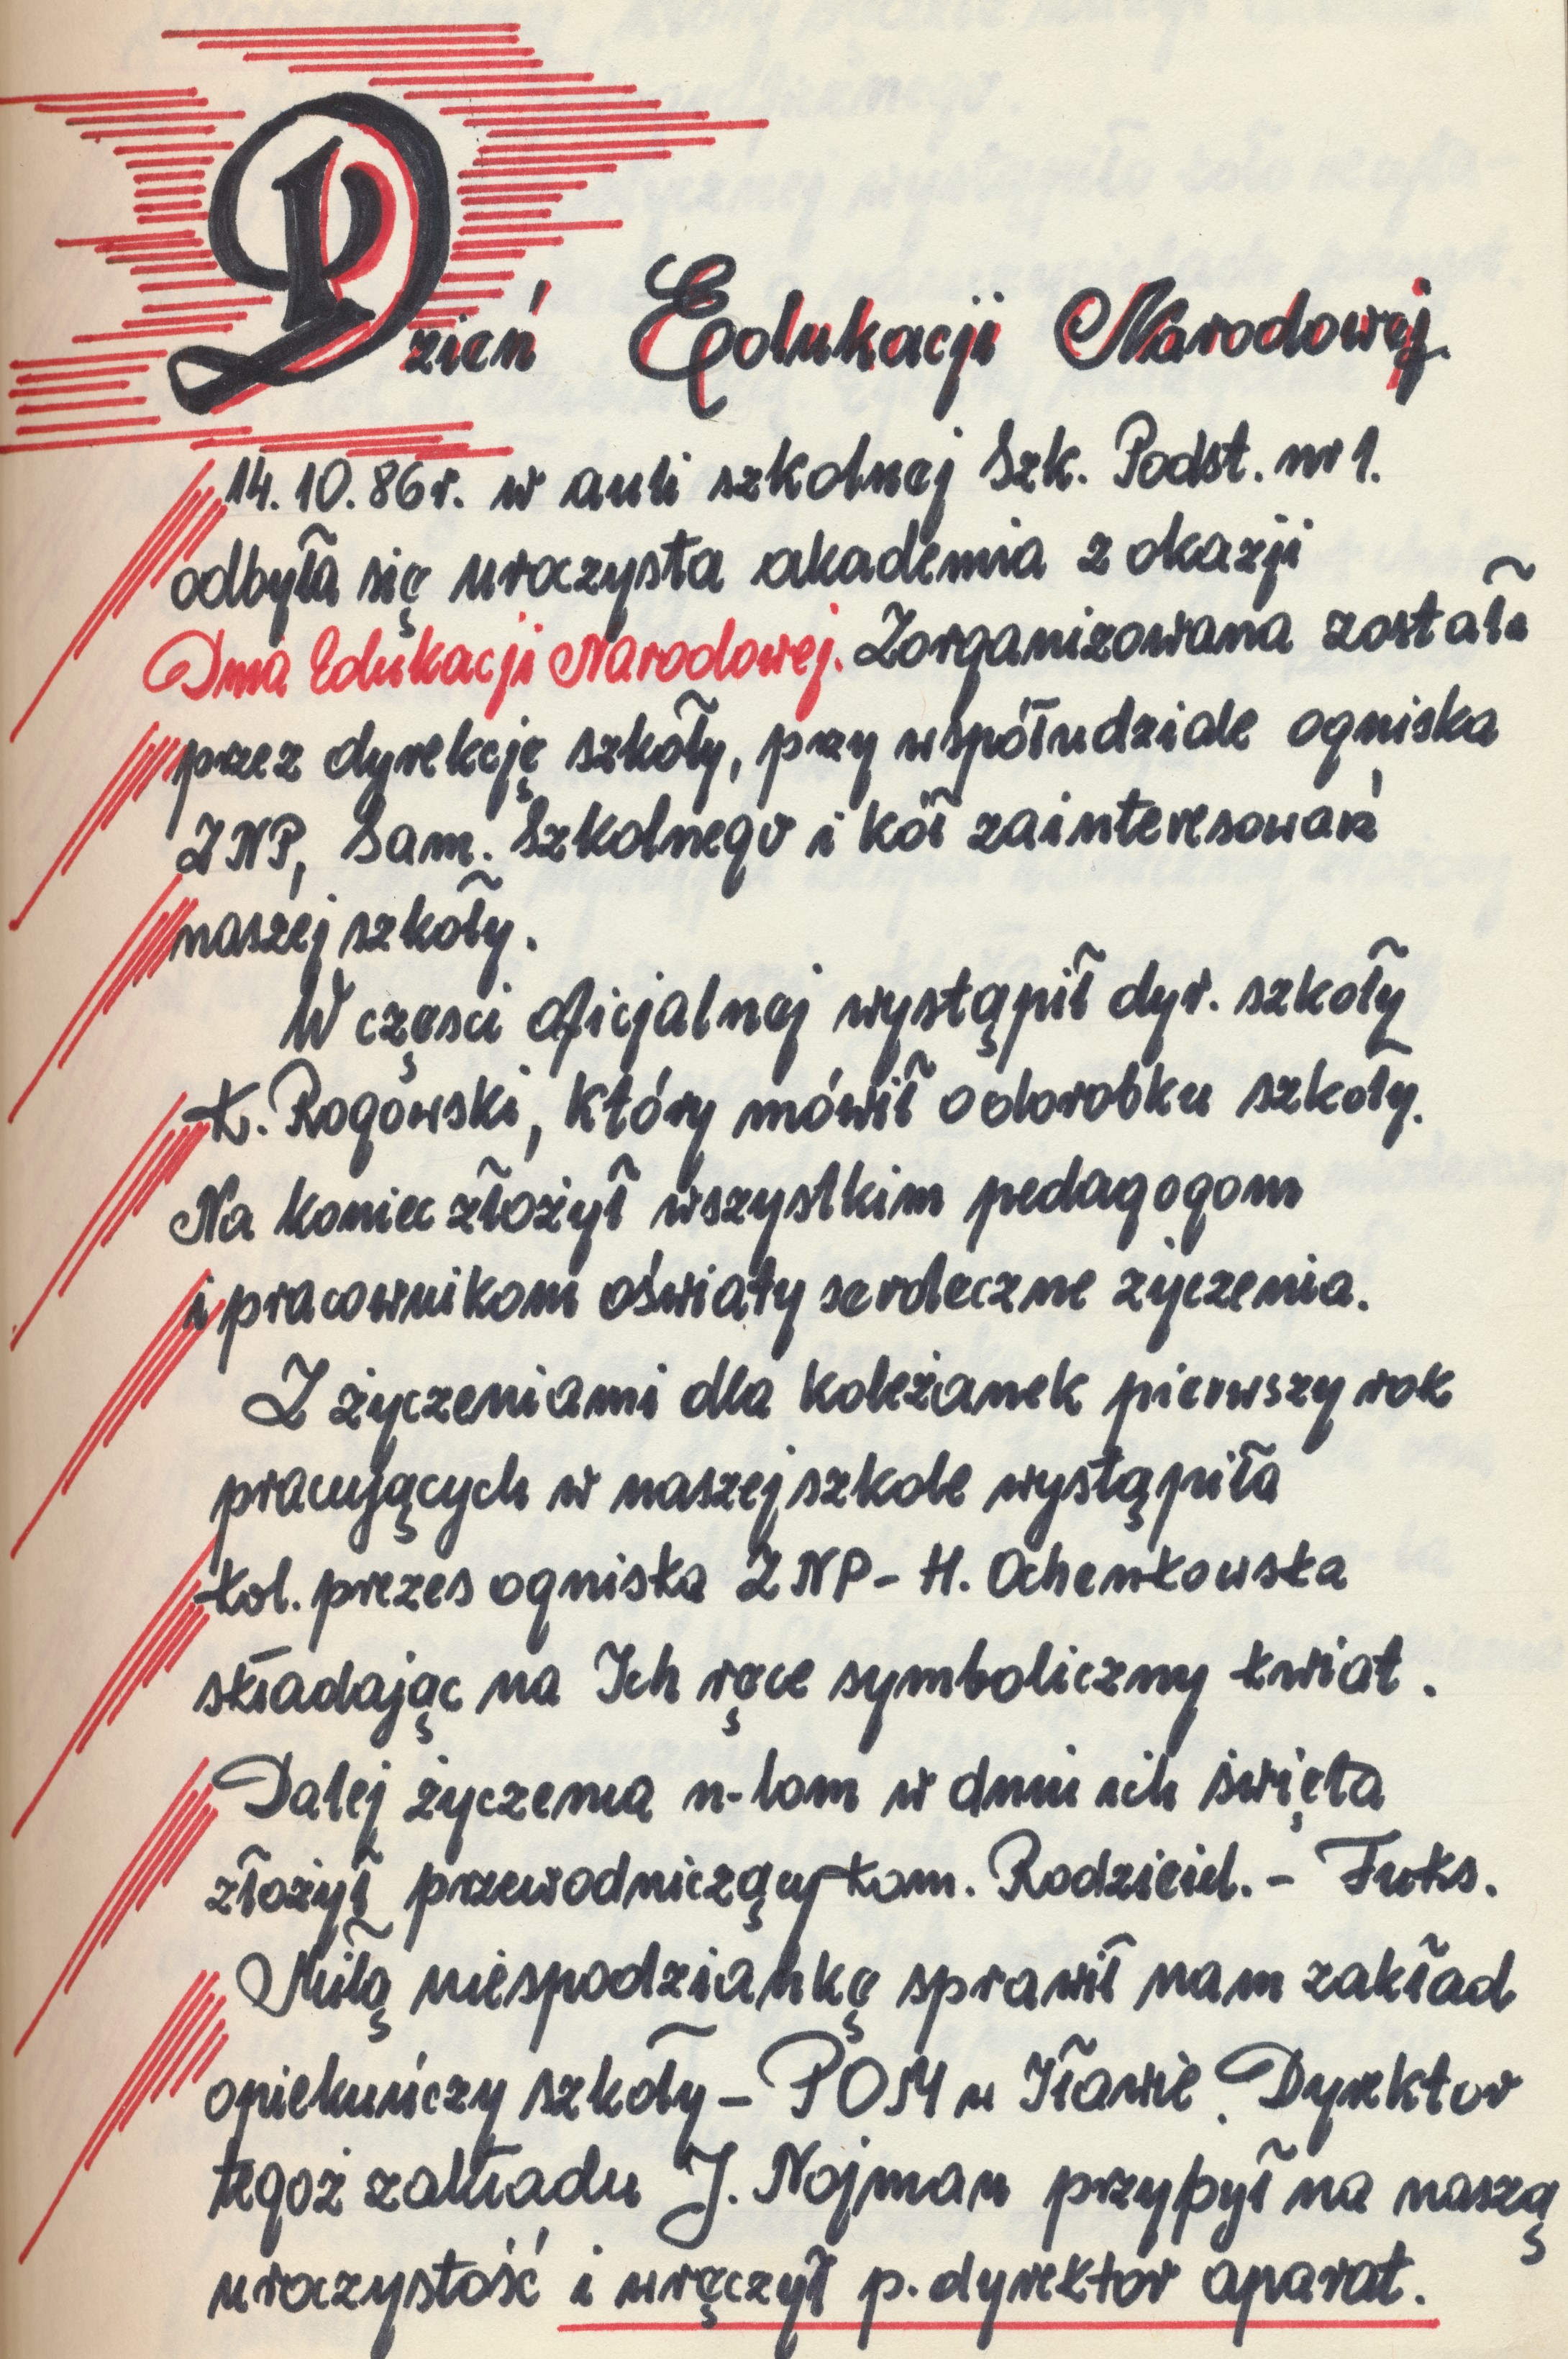 Dzień Edukacji Narodowej.
14.10.86r. w auli szkolnej Szk. Podst. nr 1.
odbyła się uroczysta akademia z okazji
Dnia Edukacji Narodowej. Zorganizowana została
przez dyrekcję szkoły, przy współudziale ogniska
ZNP, Sam. Szkolnego i kół zainteresowań
naszej szkoły.
W częsci oficjalnej wystąpił dyr. szkoły
K. Rogowski, który mówił o dorobku szkoły.
Na koniec złożył wszystkim pedagogom
i pracownikom oświaty serdeczne życzenia.
Z życzeniami dla koleżanek pierwszy rok
pracujących w naszej szkole wystąpiła
kol. prezes ogniska ZNP - H. Ochenkowska
składając na Ich ręce symboliczny kwiat.
Dalej życzenia n-lom w dniu ich święta
złożył przewodniczący kom. Rodziciel. - Fuks.
Miłą niespodziankę sprawił nam zakład
opiekuńczy szkoły - POM w Iławie. Dyrektor
tegoż zakładu J. Nojman przybył na naszą
uroczystość i wręczył p. dyrektor aparat.